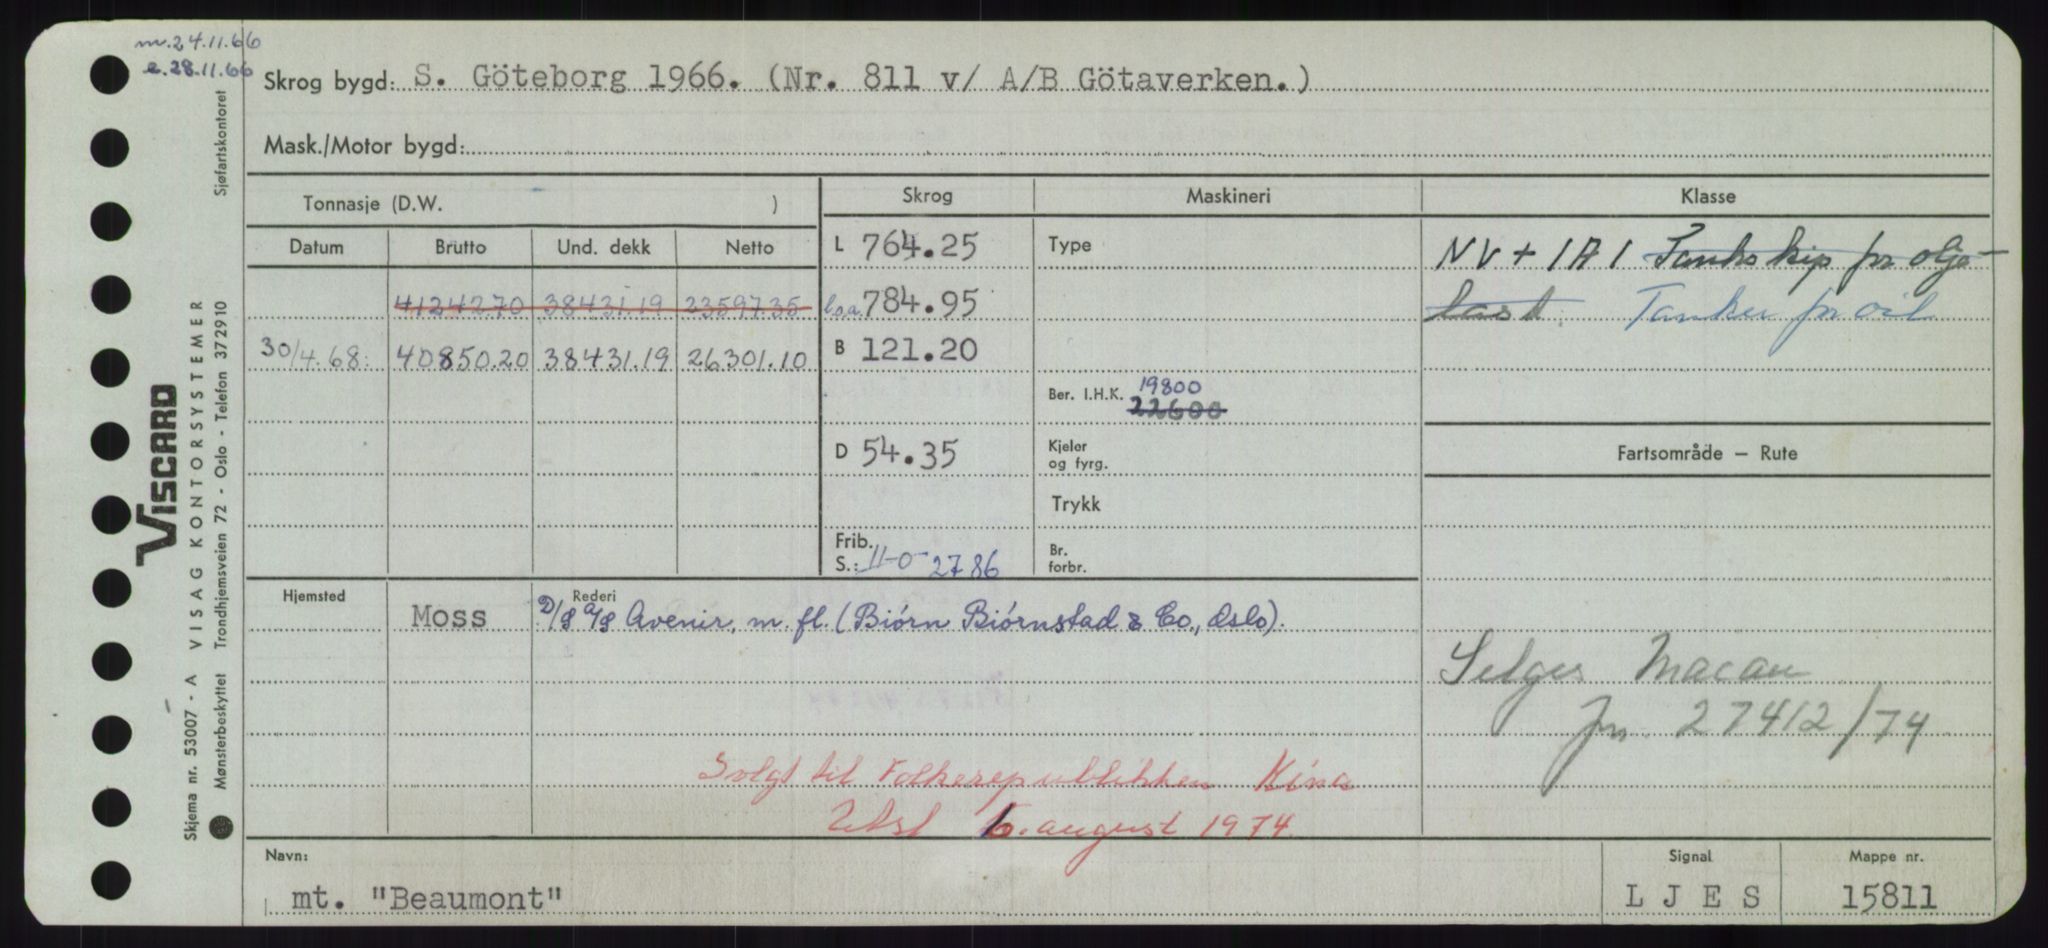 m. 24.11.66
e. 28.11.66
Skrog bygd: S. Göteborg 1966. (Nr. 811 v/ A/B Götaverken.)
Mask./Motor bygd:
Tonnasje (D.W. )
Skrog
Maskineri
Klasse
Datum Brutto Und. dekk Netto
L 764.25
Type
NV + 1A1 Tankskip for olje-
41242.70 38431.19 23597.35
l.o.a. 784.95
last. Tanker for oil
30/4.68. 40850.20 38431.19 26301.10
B 121.20
Ber. I.H.K. 19800
22600
D 54.35
Kjeler
og fyrg.
Fartsområde — Rute
Trykk
Frib.
S.: 11-0 2786
Br.
forbr.
Hjemsted
Rederi
Moss
D/S A/S Avenir, m. fl. (Biørn Biørnstad & Co., Oslo).
Selges Macau
jnr. 27412/74
Solgt til Folkerepublikken Kina
august 1974.
Navn:
mt. "Beaumont"
Signal
L J E S
Mappe nr.
15811
VISCARD
Skjema nr. 53007 - A VISAG KONTORSYSTEMER
Mønsterbeskyttet Trondhjemsveien 72 - Oslo - Telefon 372910 Sjøfartskontoret